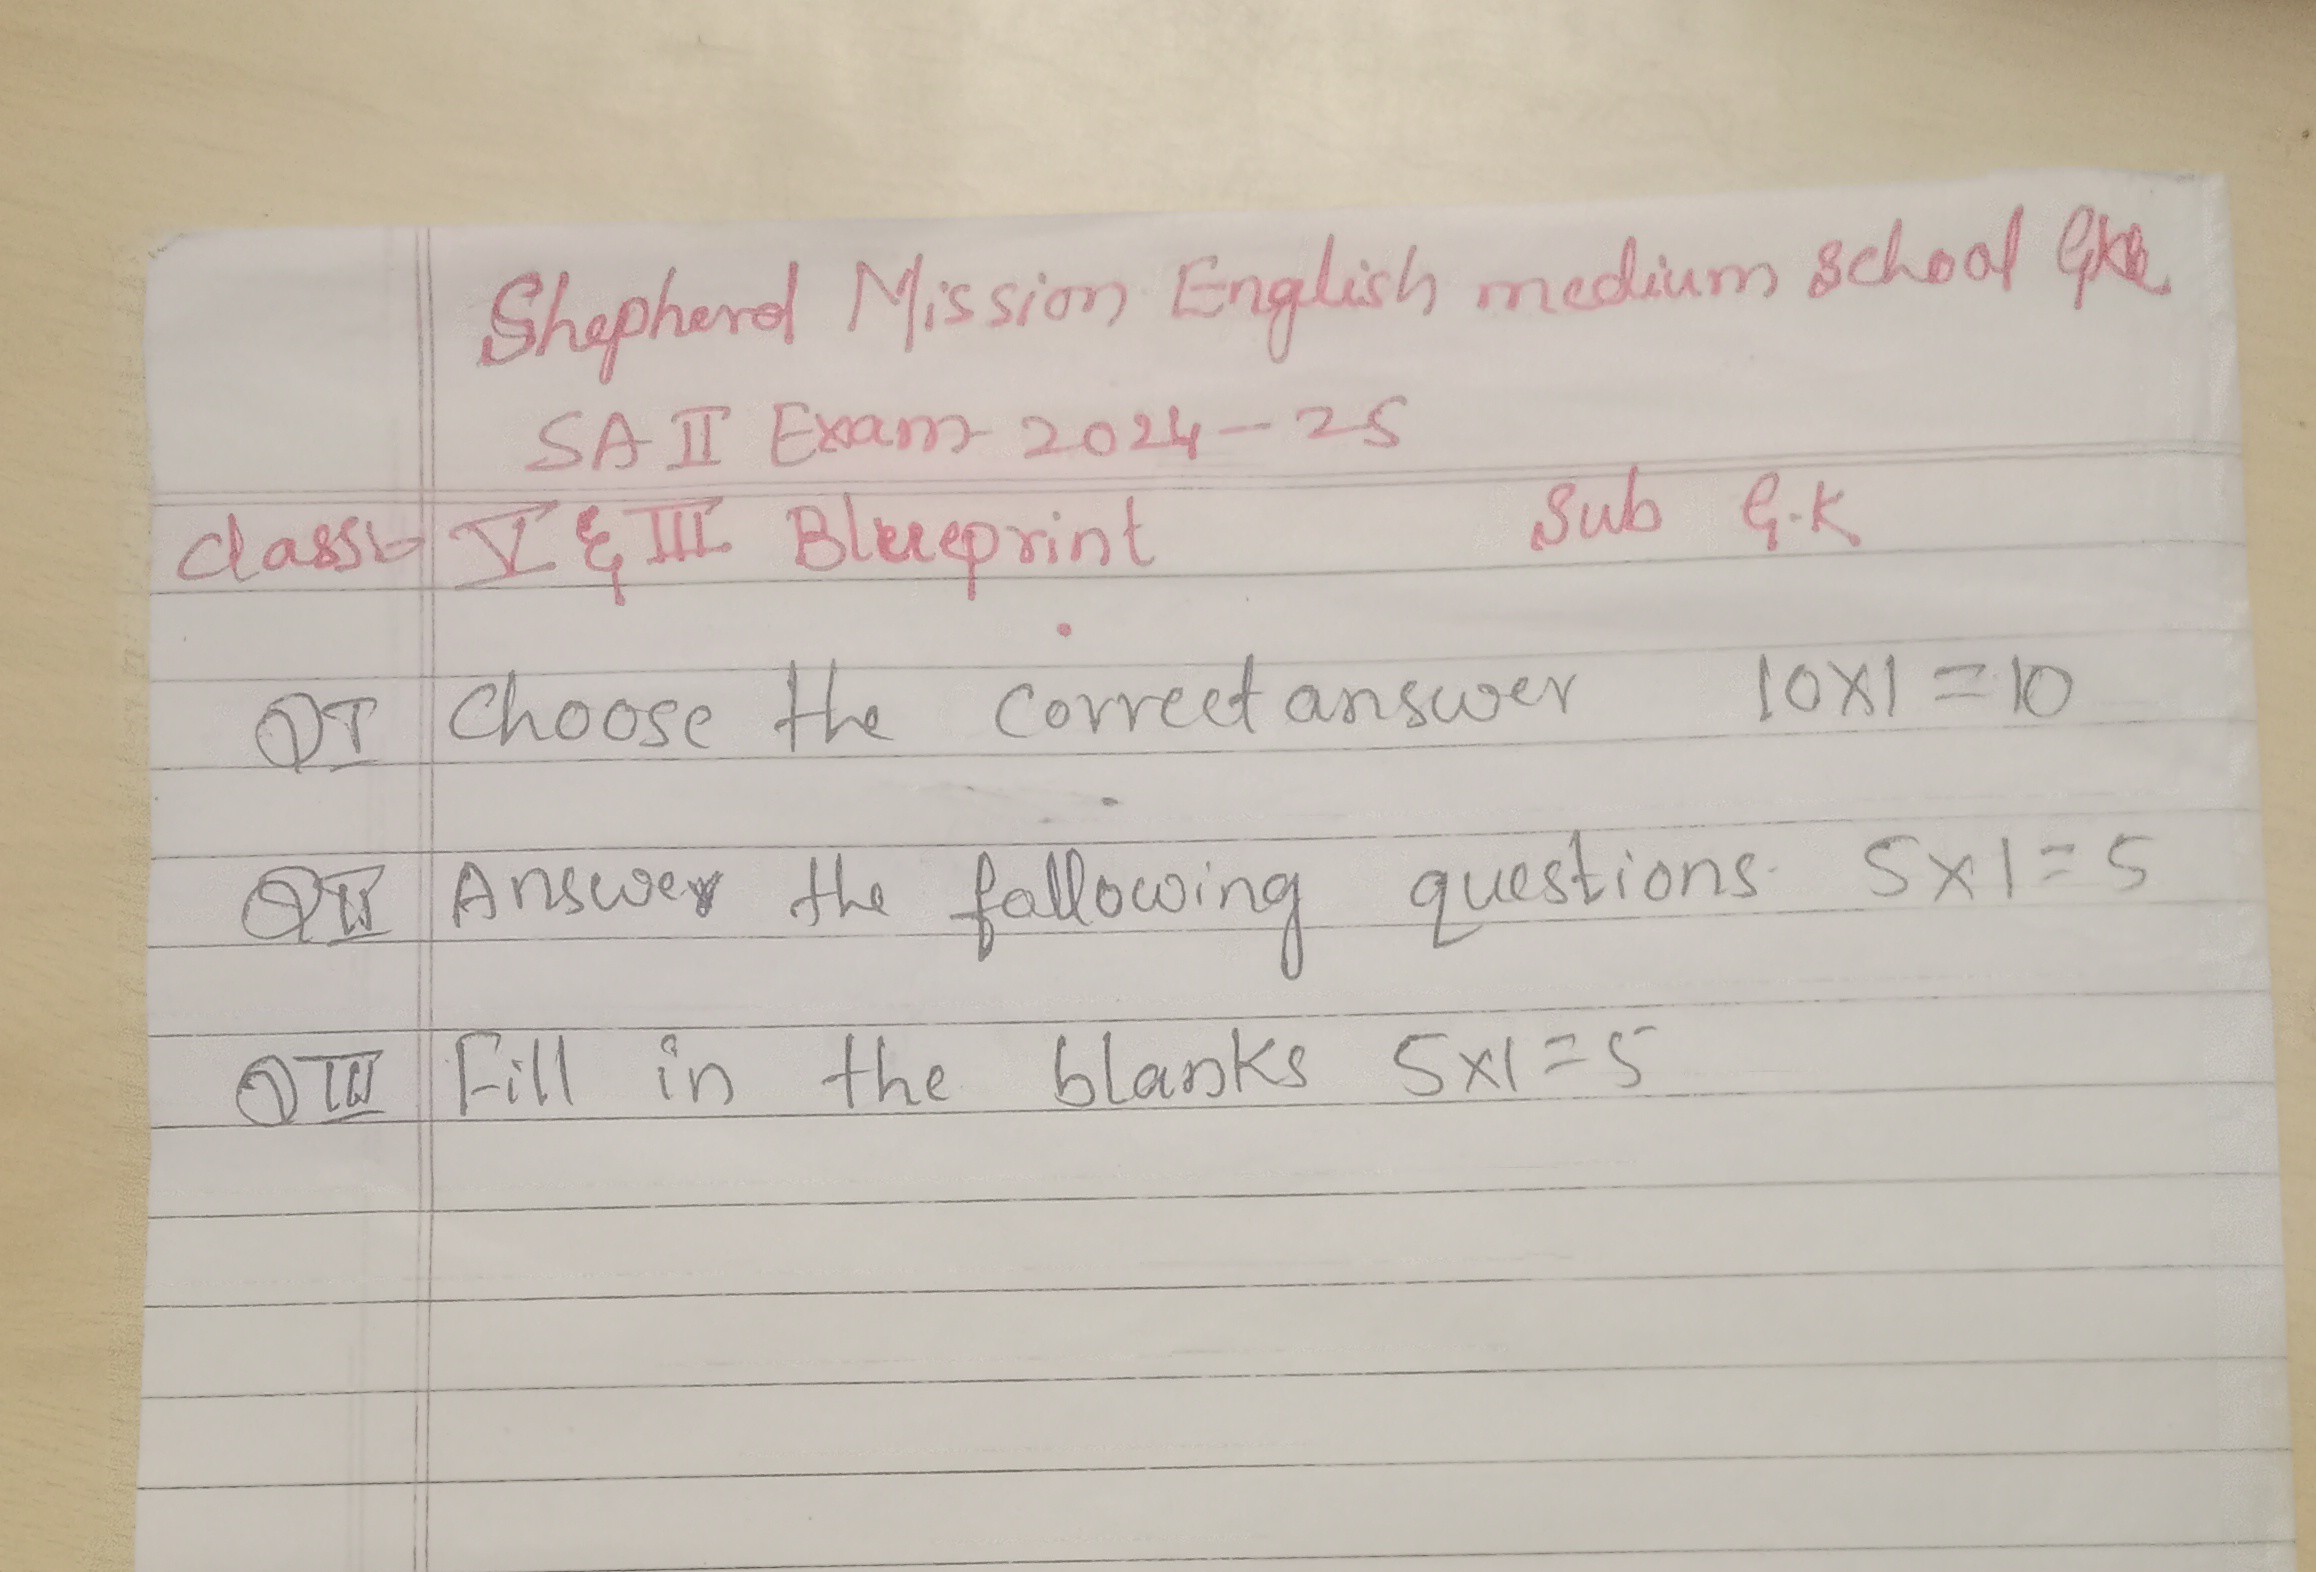 Shepherd Mission English medium school GKK
SA II Exam 2024-25
Class:- V & III Blueprint Sub G.K
QI Choose the correct answer 10x1=10
QII Answer the following questions. 5x1=5
QIII Fill in the blanks 5x1=5